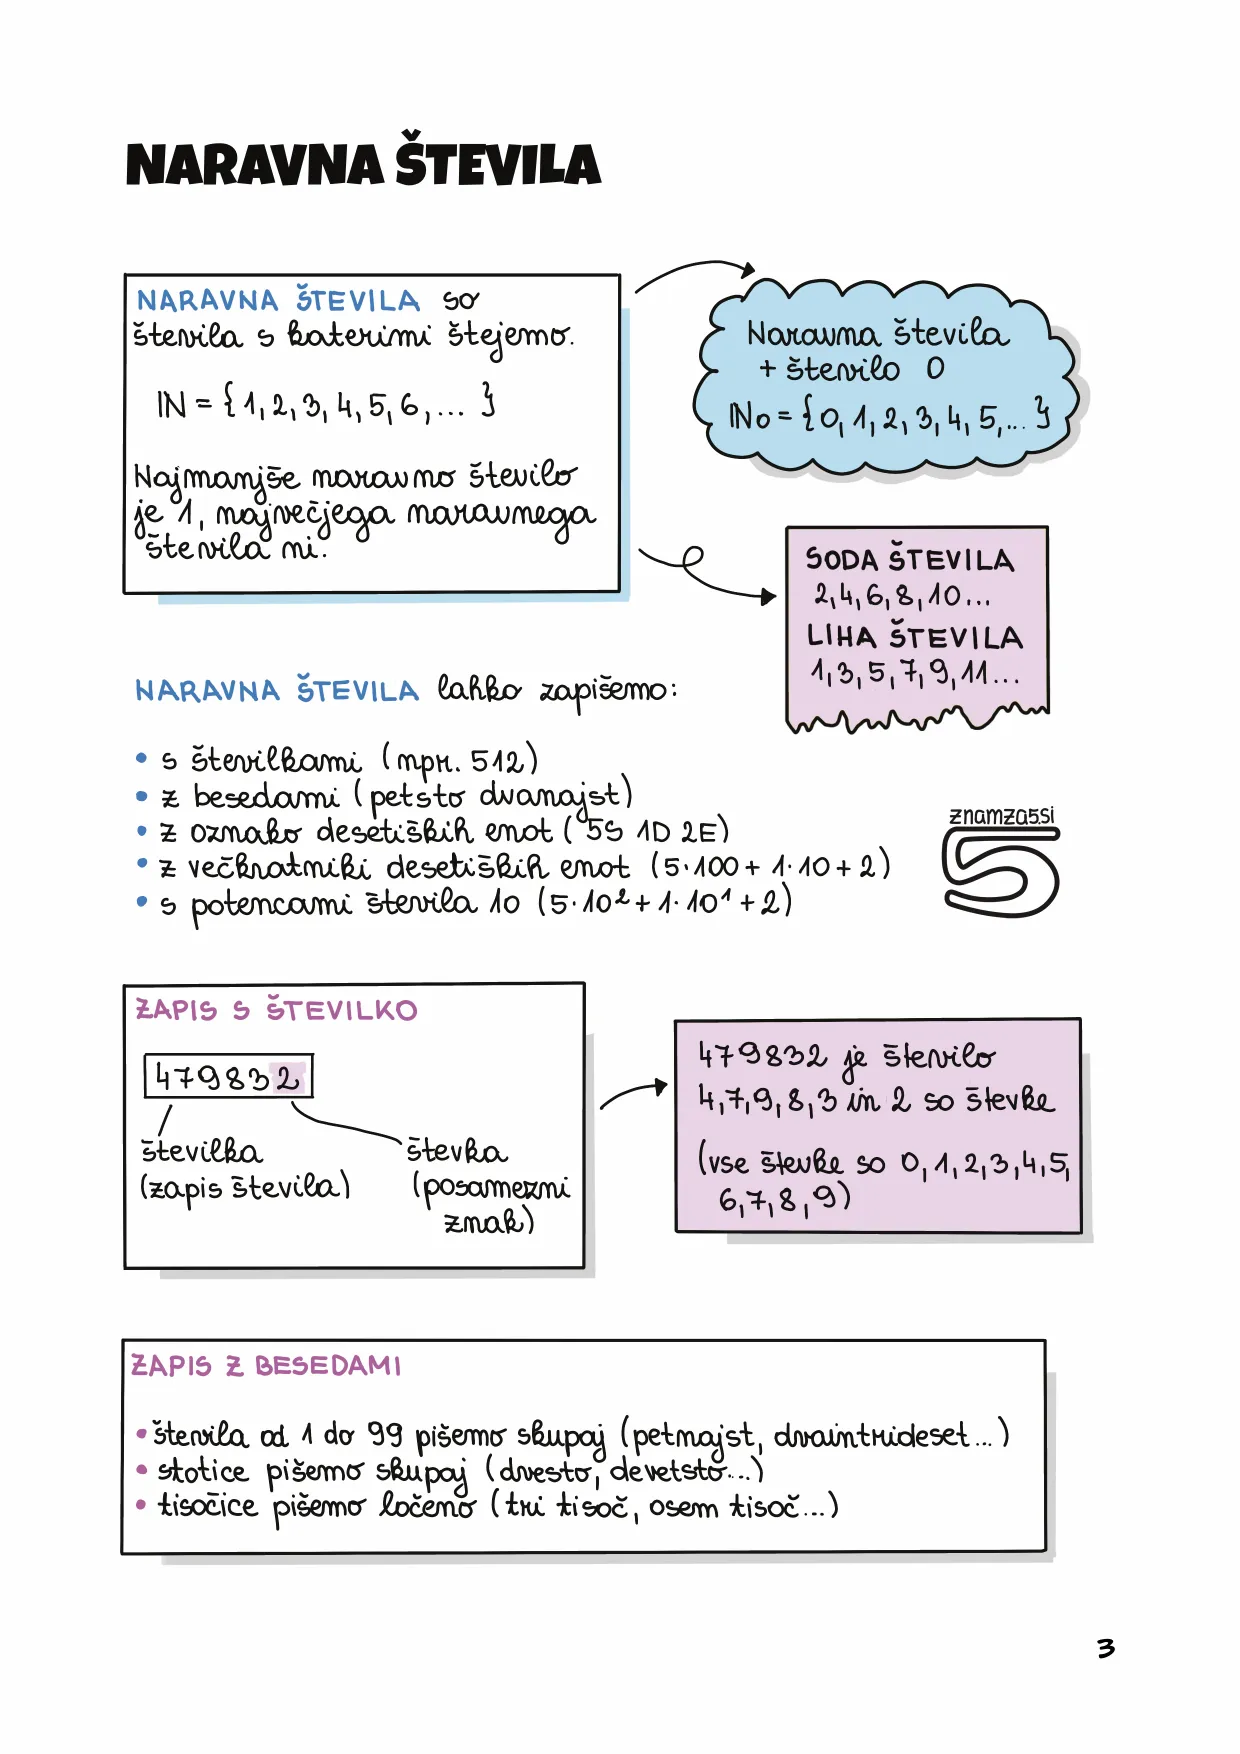 NARAVNA ŠTEVILA
NARAVNA ŠTEVILA so
števila s katerimi štejemo.
IN = {1, 2, 3, 4, 5, 6, ... }
Najmanjše naravno število
je 1, največjega naravnega
števila ni.
Naravna števila
+ število 0
INo = {0, 1, 2, 3, 4, 5, ... }
SODA ŠTEVILA
2, 4, 6, 8, 10...
LIHA ŠTEVILA
1, 3, 5, 7, 9, 11...
NARAVNA ŠTEVILA lahko zapišemo:
• s številkami (npr. 512)
• z besedami (petsto dvanajst)
• z oznako desetiških enot (5S 1D 2E)
• z večkratniki desetiških enot (5·100 + 1·10 + 2)
• s potencami števila 10 (5·10² + 1·10¹ + 2)
znamza5.si
5
ZAPIS S ŠTEVILKO
479832
številka
(zapis števila)
števka
(posamezni
znak)
479832 je število
4, 7, 9, 8, 3 in 2 so števke
(vse števke so 0, 1, 2, 3, 4, 5,
6, 7, 8, 9)
ZAPIS Z BESEDAMI
• števila od 1 do 99 pišemo skupaj (petnajst, dvaintrideset...)
• stotice pišemo skupaj (dvesto, devetsto...)
• tisočice pišemo ločeno (tri tisoč, osem tisoč...)
3